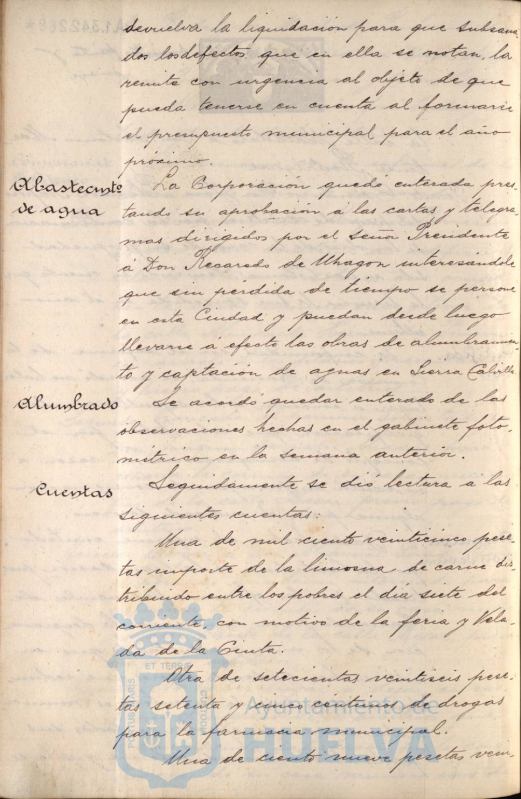 devuelva la liquidación para que subsana
dos los defectos que en ella se notan, la
remita con urgencia al objeto de que
pueda tenerse en cuenta al formarse
el presupuesto municipal para el año
próximo.
Abastecimto
de agua
La Corporación quedó enterada pres-
tando su aprobación á las cartas y telegra-
mas dirigidos por el señor Presidente
á Don Recaredo de Uhagon interesándole
que sin pérdida de tiempo se persone
en esta Ciudad y puedan desde luego
llevarse á efecto las obras de alumbramien-
to y captación de aguas en Sierra Calvilla
Alumbrado
Se acordó quedar enterado de las
observaciones hechas en el gabinete foto-
métrico en la semana anterior.
Cuentas
Seguidamente se dió lectura á las
siguientes cuentas:
Una de mil ciento veinticinco pese-
tas importe de la limosna de carne dis-
tribuido entre los pobres el dia siete del
corriente, con motivo de la feria y Vela-
da de la Cinta.
Otra de setecientas veintiseis pese-
tas setenta y cinco centimos de drogas
para la farmacia municipal.
Una de ciento nueve pesetas vein-
PORTUS MARIS
ET TERRE
CUSTODIA
Ayuntamiento de
HUELVA